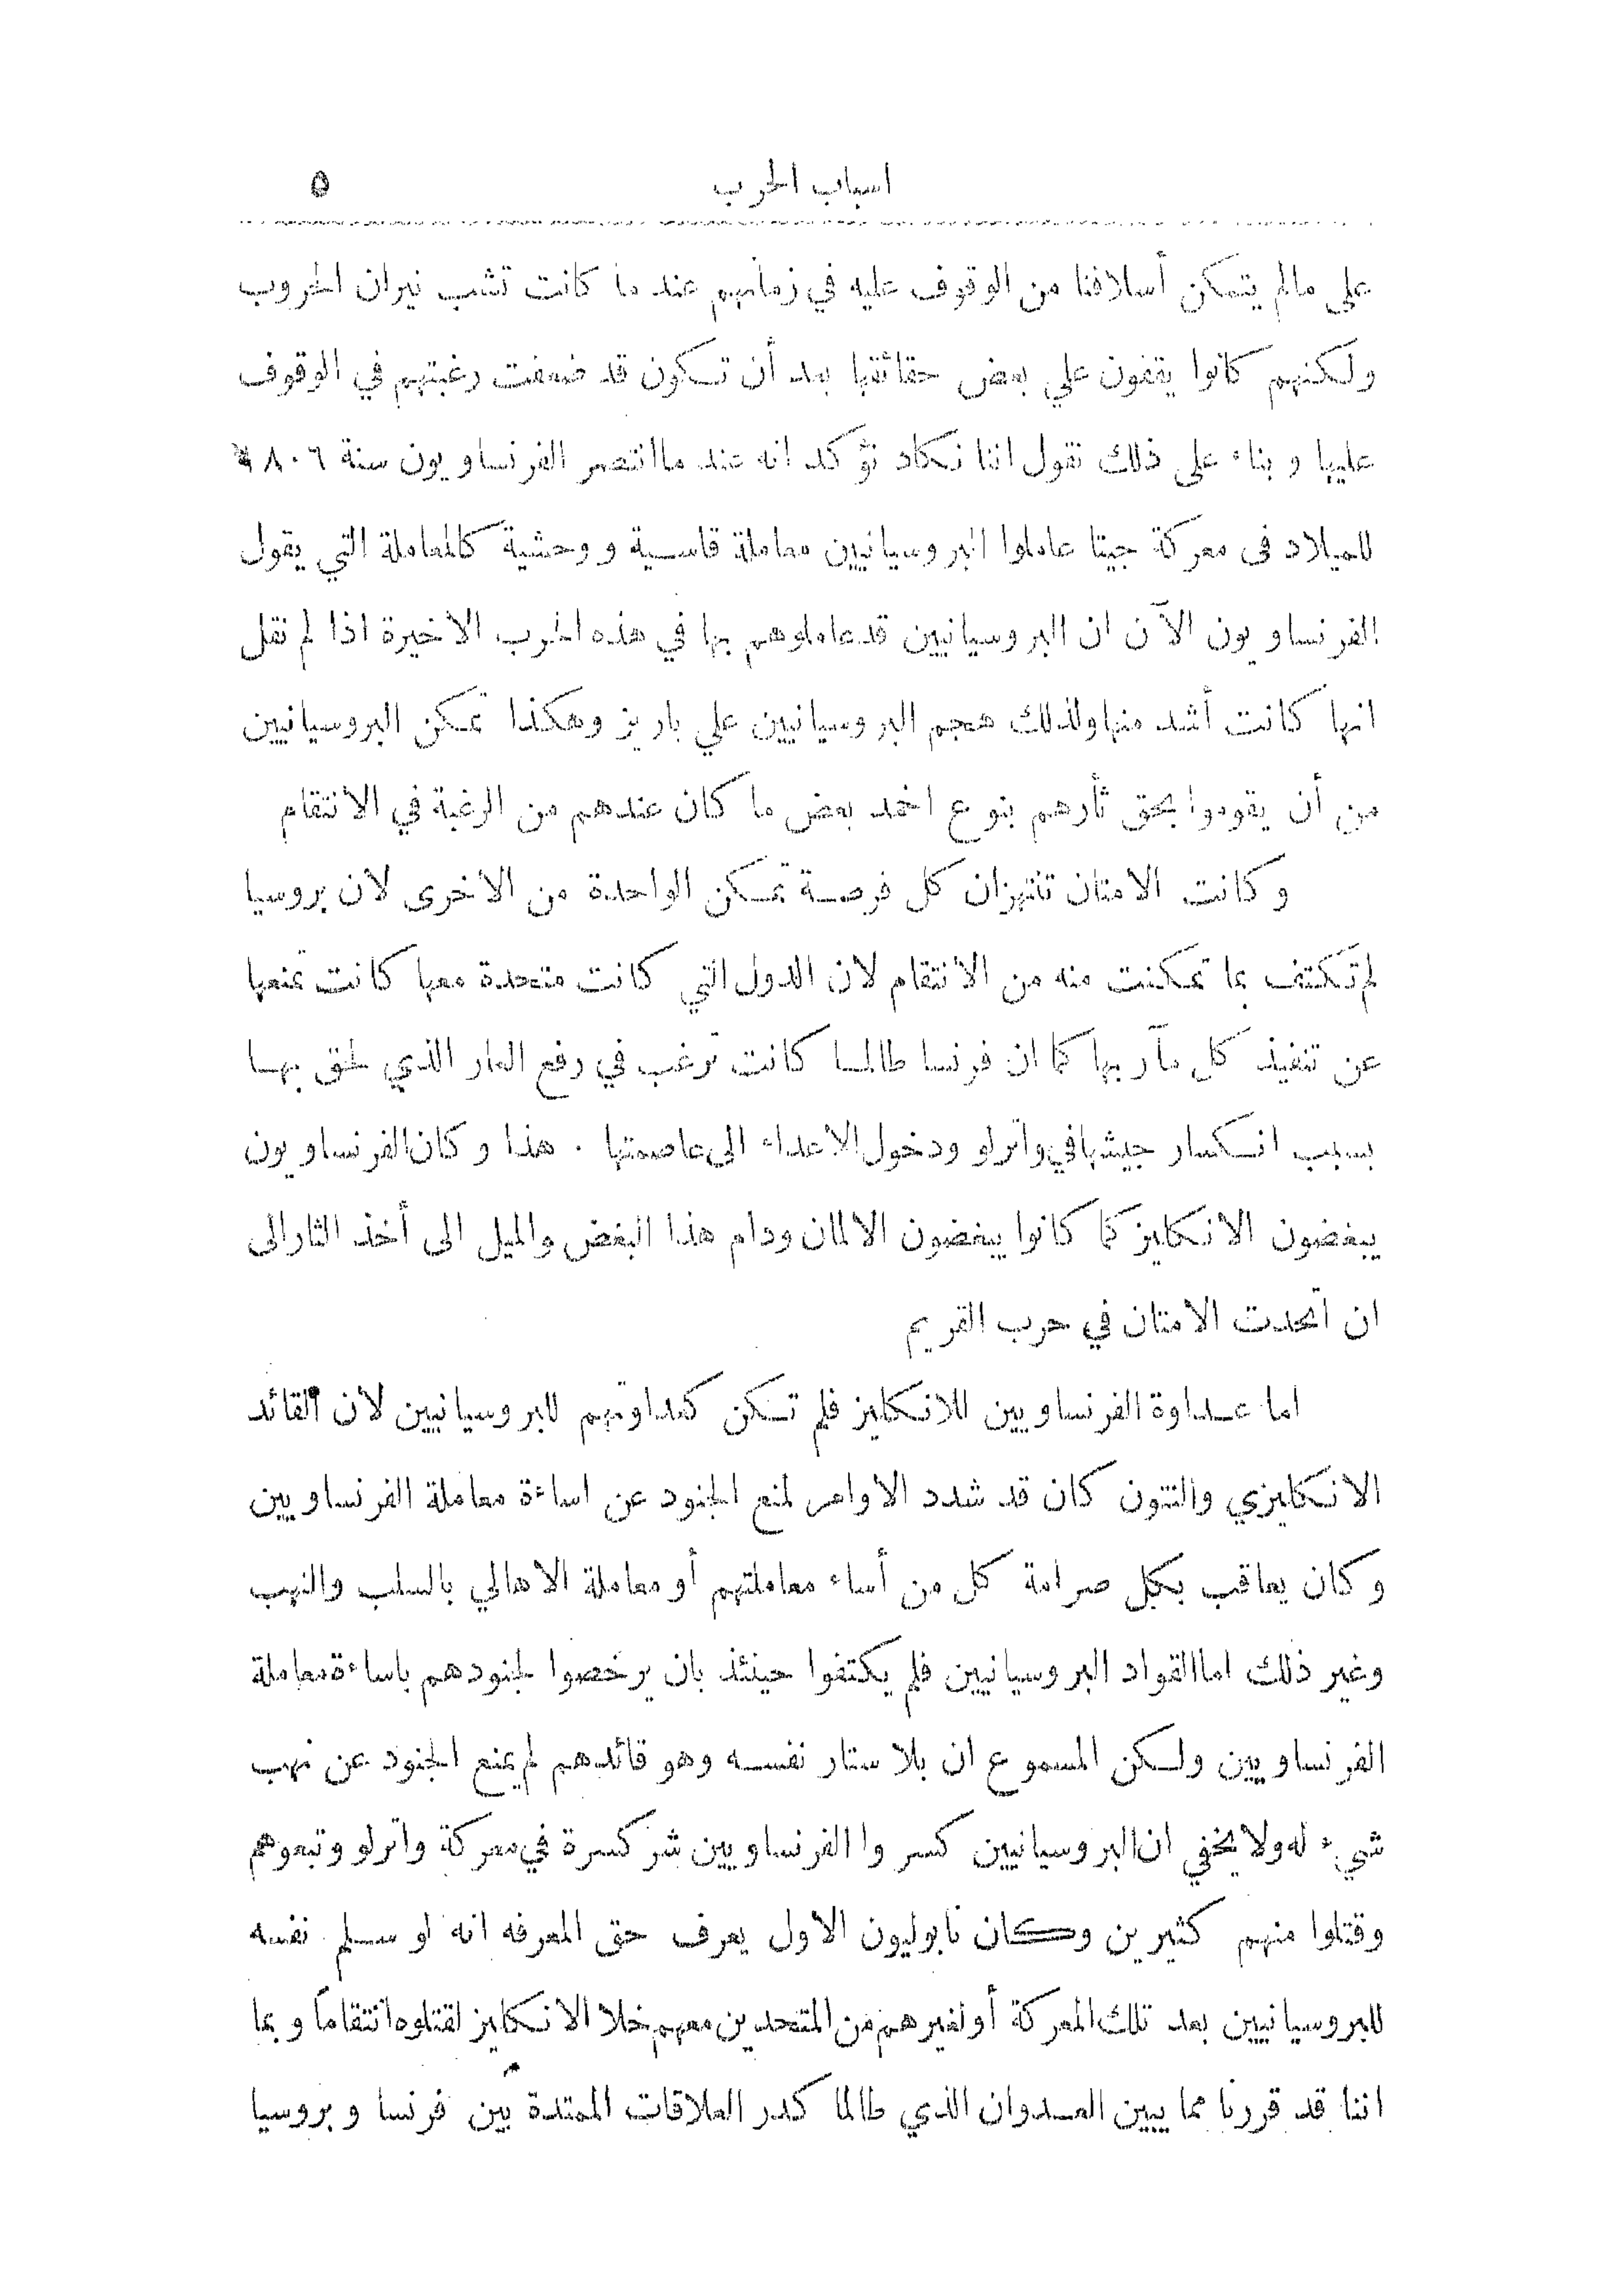 اسباب الحرب ٥
على مالم يتمكن أسلافنا من الوقوف عليه في زمانهم عند ما كانت تشب نيران الحروب
ولكنهم كانوا يقفون علي بعض حقائقها بعد أن تكون قد ضعفت رغبتهم في الوقوف
عليها و بناء على ذلك نقول اننا نكاد نؤكد انه عند ماانتصر الفرنساويون سنة ١٨٠٦
للميلاد فى معركة جينا عاملوا البروسيانيين معاملة قاسية ووحشية كالمعاملة التي يقول
الفرنساويون الآن ان البروسيانيين قدعاملوهم بها في هذه الحرب الاخيرة اذا لم نقل
انها كانت أشد منهاولذلك هجم البروسيانيين علي باريز وهكذا تمكن البروسيانيين
من أن يقوموا بحق ثأرهم بنوع اخمد بعض ما كان عندهم من الرغبة في الانتقام
وكانت الامتان تنتهزان كل فرصة تمكن الواحدة من الاخرى لان بروسيا
لم تكتف بما تمكنت منه من الانتقام لان الدول التي كانت متحدة معها كانت تمنعها
عن تنفيذ كل مآربها كما ان فرنسا طالما كانت ترغب في رفع العار الذي لحق بها
بسبب انكسار جيشهافي واترلو ودخول الاعداء الى عاصمتها . هذا وكان الفرنساويون
يبغضون الانكليز كما كانوا يبغضون الالمان ودام هذا البغض والميل الى أخذ الثار الى
ان اتحدت الامتان في حرب القريم
اما عداوة الفرنساويين للانكليز فلم تكن كعداوتهم للبروسيانيين لان القائد
الانكليزي والنتون كان قد شدد الاوامر لمنع الجنود عن اساءة معاملة الفرنساويين
وكان يعاقب بكل صرامة كل من أساء معاملتهم أو معاملة الاهالي بالسلب والنهب
وغير ذلك اماالقواد البروسيانيين فلم يكتفوا حينئذ بان يرخصوا لجنودهم باساءة معاملة
الفرنساويين ولكن المسموع ان بلا ستار نفسه وهو قائدهم لم يمنع الجنود عن نهب
شيء له ولا يخفي ان البروسيانيين كسروا الفرنساويين شر كسرة في معركة واترلو وتبعوهم
وقتلوا منهم كثيرين وكان نابوليون الاول يعرف حق المعرفه انه لو سلم نفسه
للبروسيانيين بعد تلك المعركة أولغيرهم من المتحدين معهم خلا الانكليز لقتلوه انتقاماً وبما
اننا قد قررنا مما يبين العدوان الذي طالما كدر العلاقات الممتدة بين فرنسا وبروسيا